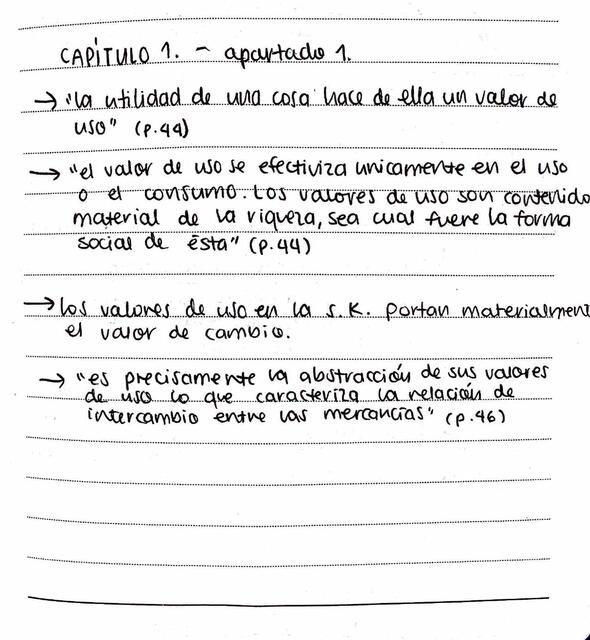 CAPÍTULO 1. - apartado 1.
→ "la utilidad de una cosa hace de ella un valor de
uso" (p.44)
→ "el valor de uso se efectiviza unicamente en el uso
o el consumo. Los valores de uso son contenido
material de la riqueza, sea cual fuere la forma
social de ésta" (p.44)
→ los valores de uso en la s.K. portan materialment
el valor de cambio.
→ "es precisamente la abstracción de sus valores
de uso lo que caracteriza la relación de
intercambio entre las mercancías" (p.46)